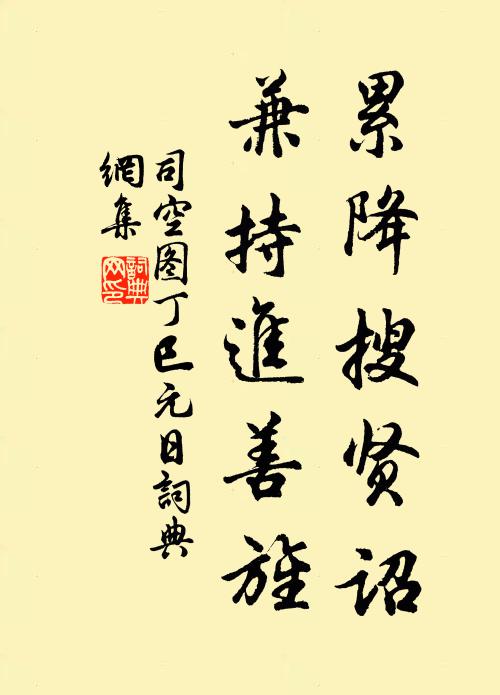 累降搜贤诏
兼持進善旌
司空图丁巳元日詞典
網集
詞典
网印